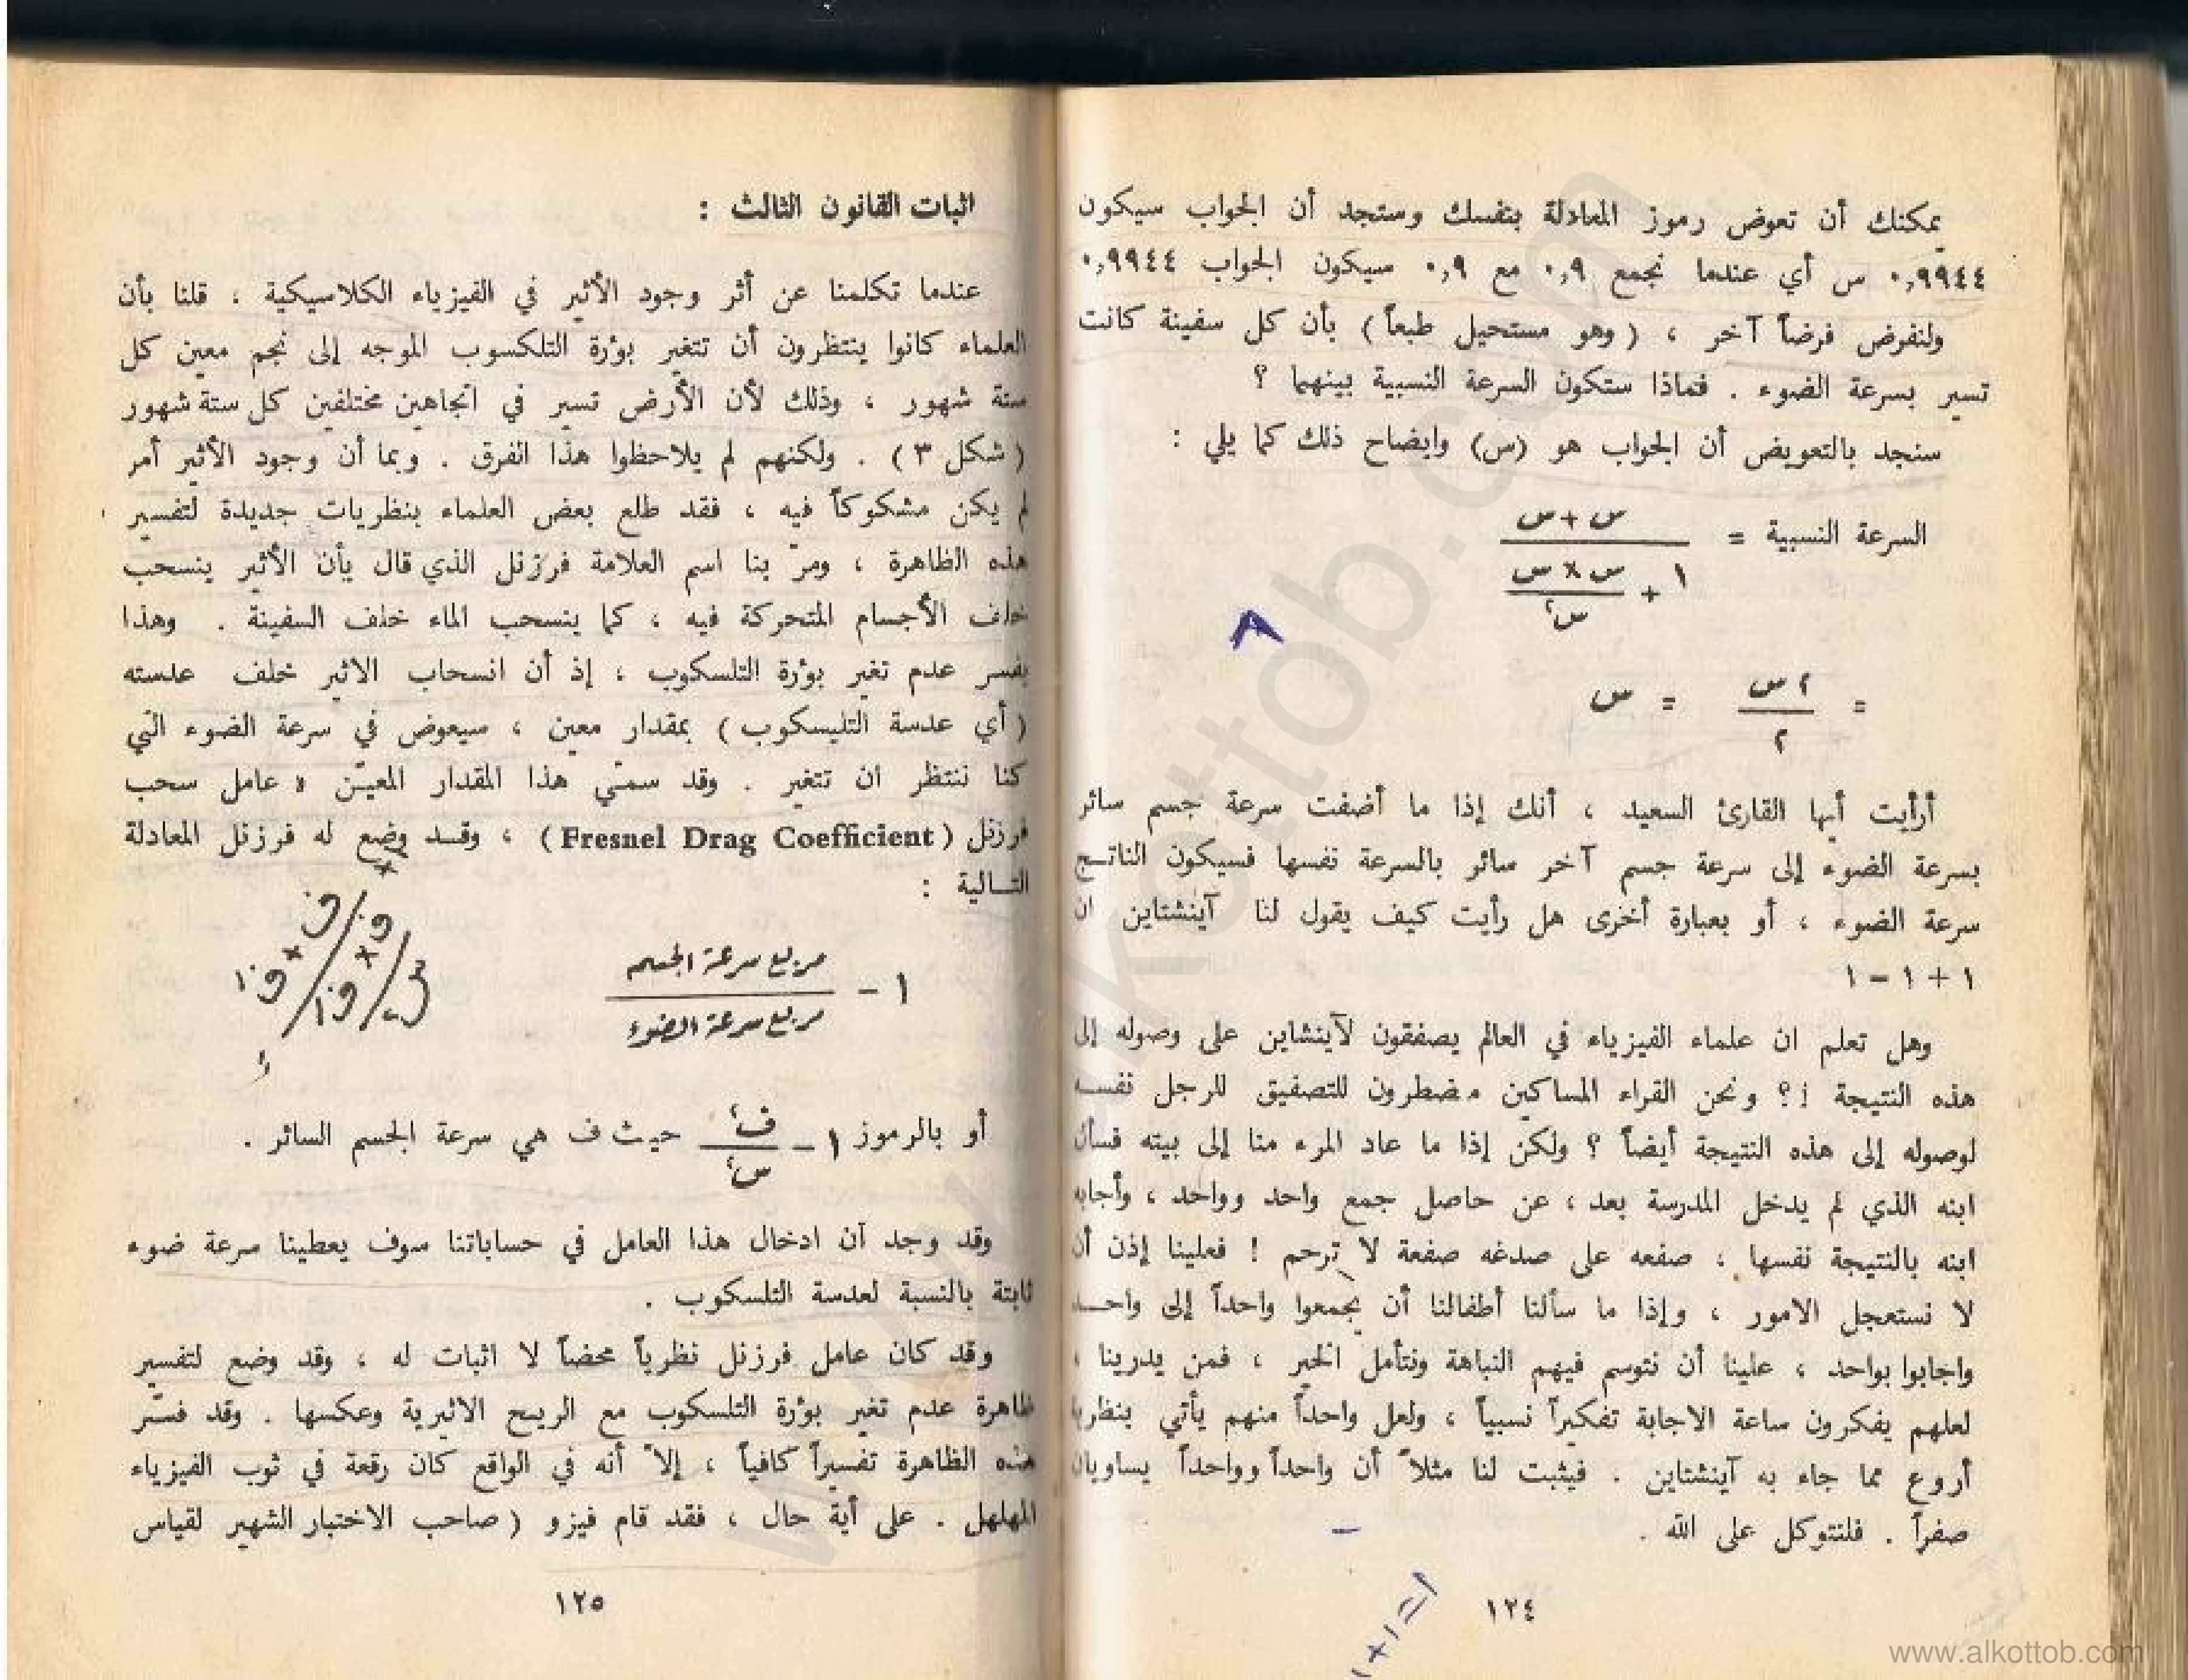 يمكنك أن تعوض رموز المعادلة بنفسك وستجد أن الجواب سيكون
٠,٩٩٤٤ س أي عندما نجمع ٠,٩ مع ٠,٩ سيكون الجواب ٠,٩٩٤٤
ولنفرض فرضاً آخر ، ( وهو مستحيل طبعاً ) بأن كل سفينة كانت
تسير بسرعة الضوء . فماذا ستكون السرعة النسبية بينهما ؟
سنجد بالتعويض أن الجواب هو (س) وايضاح ذلك كما يلي :
السرعة النسبية =
س + س
١ + س × س
س٢
= ٢ س = س
٢
A
أرأيت أيها القارئ السعيد ، أنك إذا ما أضفت سرعة جسم سائر
بسرعة الضوء إلى سرعة جسم آخر سائر بالسرعة نفسها فسيكون الناتج
سرعة الضوء ، أو بعبارة أخرى هل رأيت كيف يقول لنا آينشتاين ان
١ + ١ - ١
وهل تعلم ان علماء الفيزياء في العالم يصفقون لآينشاين على وصوله إلى
هذه النتيجة !؟ ونحن القراء المساكين مضطرون للتصفيق للرجل نفسه
لوصوله إلى هذه النتيجة أيضاً ؟ ولكن إذا ما عاد المرء منا إلى بيته فسأل
ابنه الذي لم يدخل المدرسة بعد ، عن حاصل جمع واحد وواحد ، وأجابه
ابنه بالنتيجة نفسها ، صفعه على صدغه صفعة لا ترحم ! فعلينا إذن أن
لا نستعجل الامور ، وإذا ما سألنا أطفالنا أن يجمعوا واحداً إلى واحـد
واجابوا بواحد ، علينا أن نتوسم فيهم النباهة ونتأمل الخير ، فمن يدرينا ،
لعلهم يفكرون ساعة الاجابة تفكيراً نسبياً ، ولعل واحداً منهم يأتي بنظريا
أروع مما جاء به آينشتاين . فيثبت لنا مثلاً أن واحداً وواحداً يساويان
صفراً . فلنتوكل على الله .
١+١=١
١٢٤
اثبات القانون الثالث :
عندما تكلمنا عن أثر وجود الأثير في الفيزياء الكلاسيكية ، قلنا بأن
العلماء كانوا ينتظرون أن تتغير بؤرة التلكسوب الموجه إلى نجم معين كل
ستة شهور ، وذلك لأن الأرض تسير في اتجاهين مختلفين كل ستة شهور
( شكل ٣ ) . ولكنهم لم يلاحظوا هذا الفرق . وبما أن وجود الأثير أمر
لم يكن مشكوكاً فيه ، فقد طلع بعض العلماء بنظريات جديدة لتفسير
هذه الظاهرة ، ومرّ بنا اسم العلامة فرزنل الذي قال بأن الأثير ينسحب
خلف الأجسام المتحركة فيه ، كما ينسحب الماء خلف السفينة . وهذا
يفسر عدم تغير بؤرة التلسكوب ، إذ أن انسحاب الاثير خلف عدسته
( أي عدسة التليسكوب ) بمقدار معين ، سيعوض في سرعة الضوء التي
كنا ننتظر ان تتغير . وقد سمتي هذا المقدار المعيّن « عامل سحب
فرزنل ( Fresnel Drag Coefficient ) ، وقـد وضع له فرزنل المعادلة
التـالية :
١ - مربع سرعة الجسم
مربع سرعة الضوء
أو بالرموز ١ - ف٢ حيث ف هي سرعة الجسم السائر .
س٢
وقد وجد أن ادخال هذا العامل في حساباتنا سوف يعطينا سرعة ضوء
ثابتة بالنسبة لعدسة التلسكوب .
وقد كان عامل فرزنل نظرياً محضاً لا اثبات له ، وقد وضع لتفسير
ظاهرة عدم تغير بؤرة التلسكوب مع الريـح الاثيرية وعكسها . وقد فسّر
هذه الظاهرة تفسيراً كافياً ، إلاّ أنه في الواقع كان رقعة في ثوب الفيزياء
المهلهل . على أية حال ، فقد قام فيزو ( صاحب الاختبار الشهير لقياس
١٢٥
www.alkottob.com